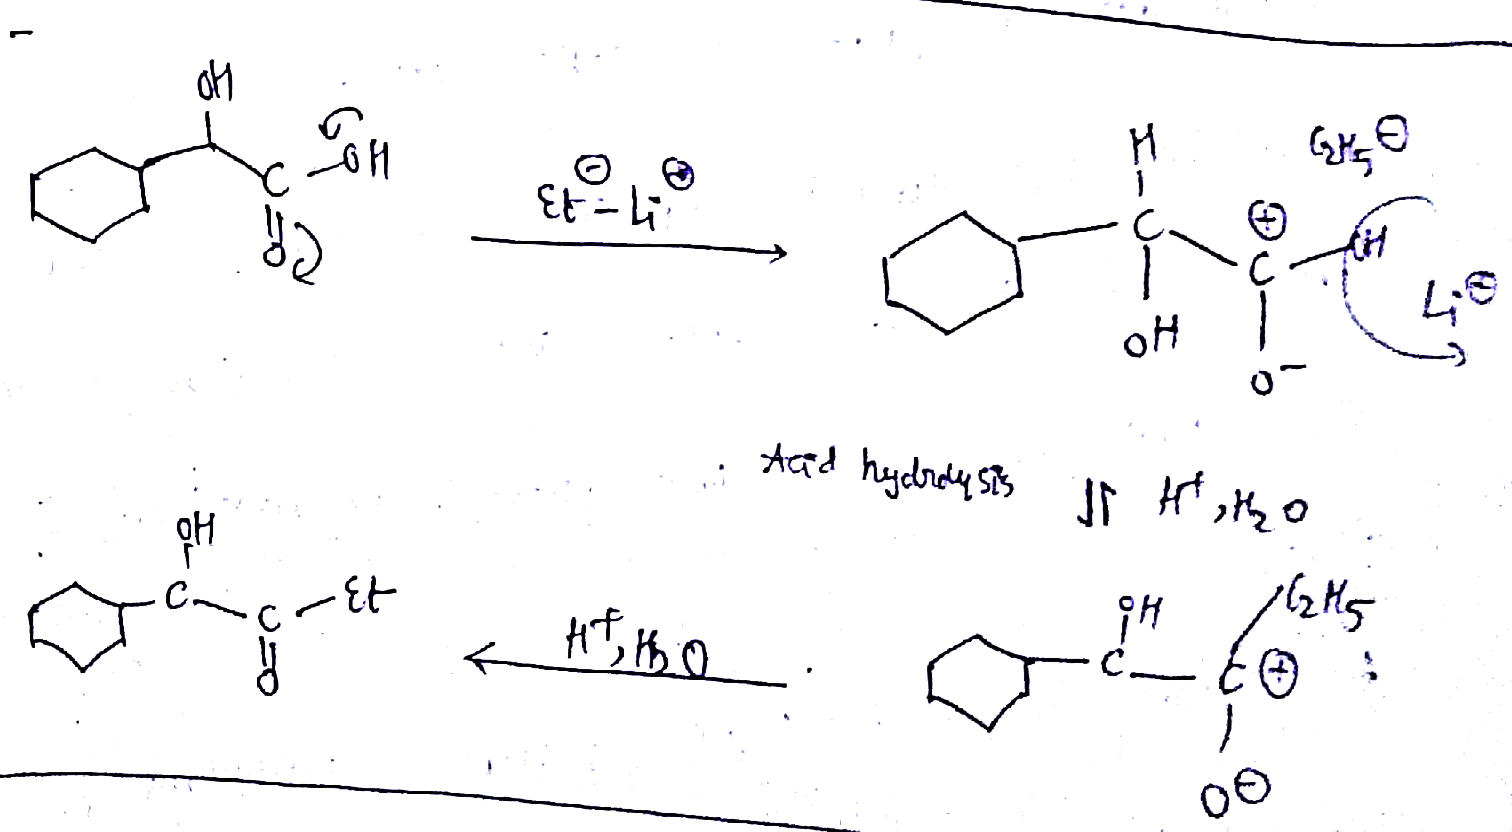 OH
C
OH
O
Et⊖ – Li⊕
H
C
OH
⊕
C
O⁻
C₂H₅⊖
Li⊖
Acid hydrolysis
⇌ H⁺, H₂O
OH
C
C
Et
O
H⁺, H₂O
OH
C
C₂H₅
C⊕
O⊖